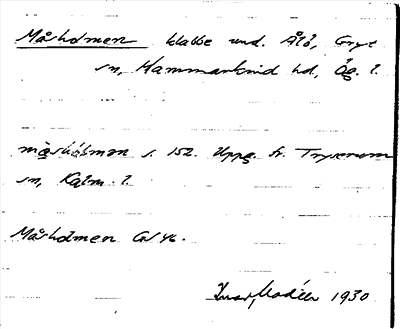 Måsholmen klabbe und. Ålö, Gryt
sn, Hammarkind hd, Ög. l.
måshólmen s. 152. Uppg. fr. Tryserum
sn, Kalm. l.
Måsholmen
Ivar Modéer 1930